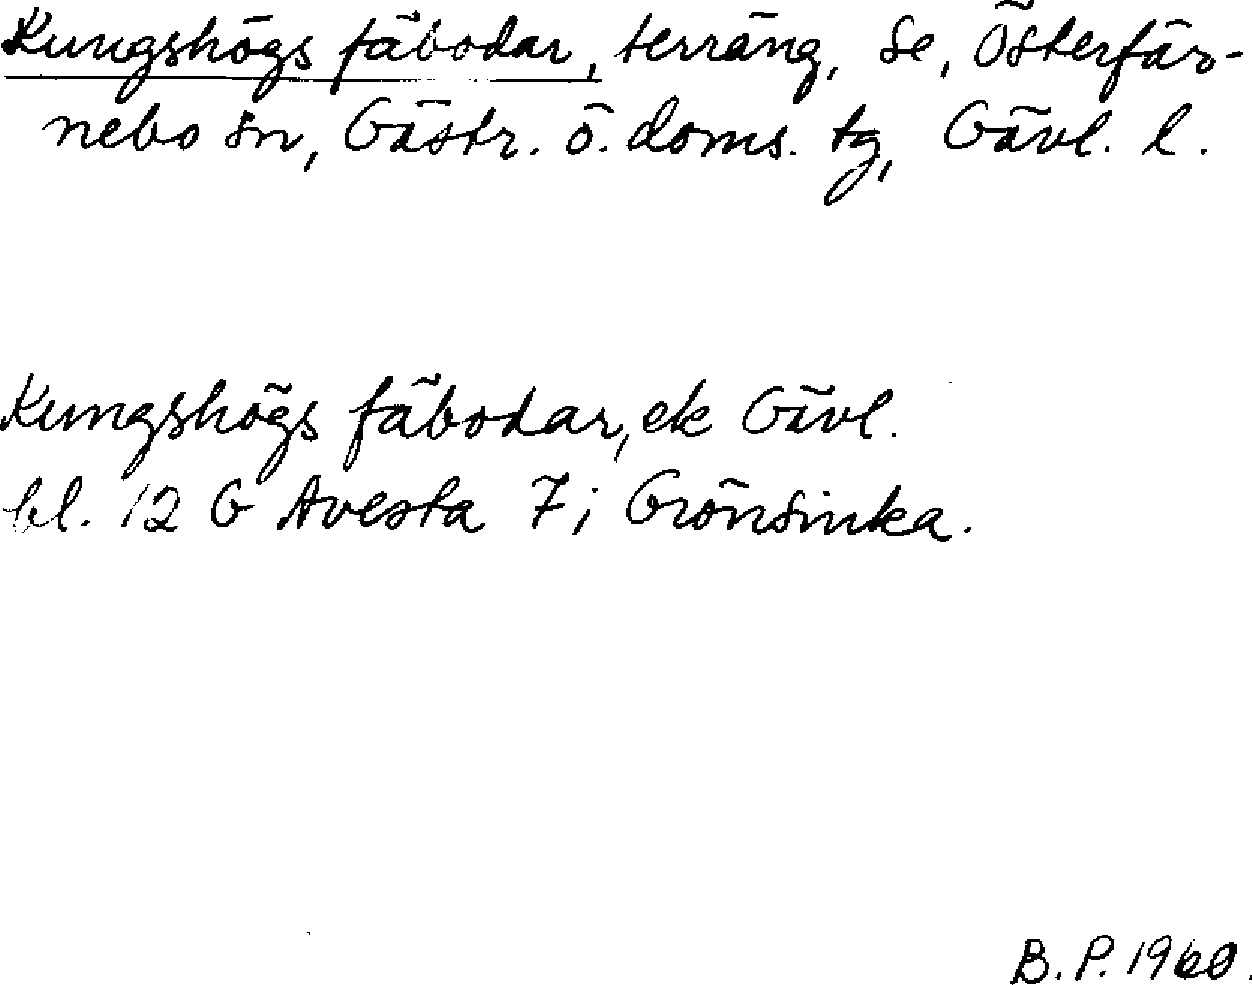 Kungshögs fäbodar, terräng, Se, Österfär-
nebo sn, Gästr. ö. doms. tg, Gävl. l.
Kungshögs fäbodar, ek Gävl.
bl. 12 G Avesta 7 i Grönsinka.
B. P. 1960.